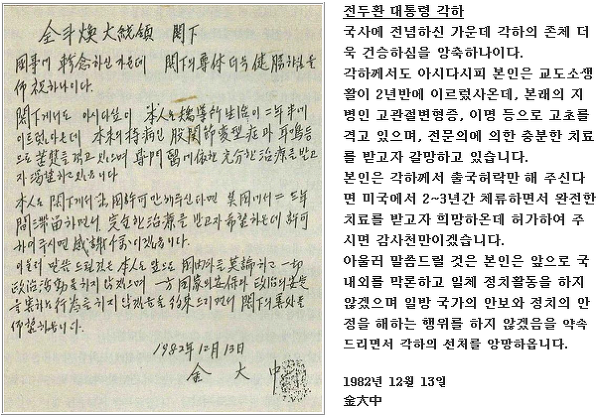 全斗煥大統領 閣下
國事에 軫念하신 가운데 閣下의 尊体 더욱 健勝하심을
仰祝하나이다.
閣下께서도 아시다싶이 本人은 矯導所生活이 二年半에
이르렀아온데 本來의 持病인 股關節變型症과 耳鳴等
으로 苦楚를 격고 있으며 専門醫에依한 充分한 治療를 받고
자 渴望하고 있읍니다
本人은 閣下께서 出國許可만 해주신다면 美國에서 二~三年
間 滯留하면서 完全한 治療를 받고자 希望하온데 許可
하여 주시면 感謝千萬이겠읍니다.
아울러 말씀드릴것은 本人은 앞으로 國內外를 莫論하고 一切
政治活動을 하지 않겠으며 一方 國家의 安保와 政治의 安定
을 害하는 行為를 하지 않겠음을 約束드리면서 閣下의 善処를
仰望하옵니다.
1982年 12月 13日
金 大 中
전두환 대통령 각하
국사에 전념하신 가운데 각하의 존체 더
욱 건승하심을 앙축하나이다.
각하께서도 아시다시피 본인은 교도소생
활이 2년반에 이르렀사온데, 본래의 지
병인 고관절변형증, 이명 등으로 고초를
격고 있으며, 전문의에 의한 충분한 치료
를 받고자 갈망하고 있습니다.
본인은 각하께서 출국허락만 해 주신다
면 미국에서 2~3년간 체류하면서 완전한
치료를 받고자 희망하온데 허가하여 주
시면 감사천만이겠습니다.
아울러 말씀드릴 것은 본인은 앞으로 국
내외를 막론하고 일체 정치활동을 하지
않겠으며 일방 국가의 안보와 정치의 안
정을 해하는 행위를 하지 않겠음을 약속
드리면서 각하의 선처를 앙망하옵니다.
1982년 12월 13일
金大中